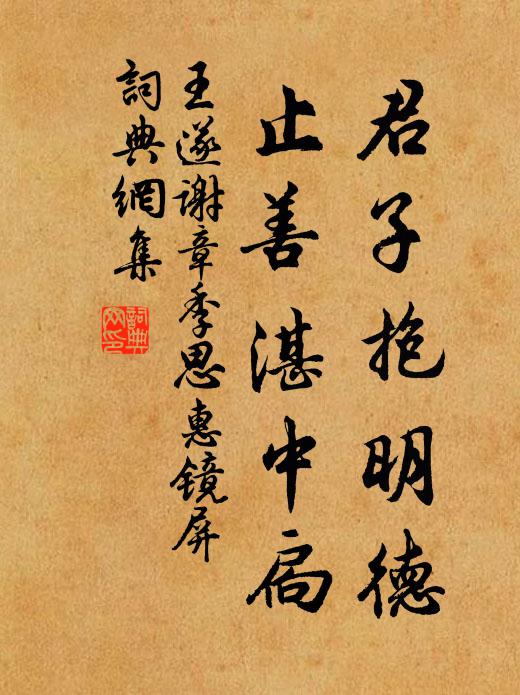 君子抱明德
止善湛中扃
王遂谢章季思惠镜屏
詞典網集
詞典网印